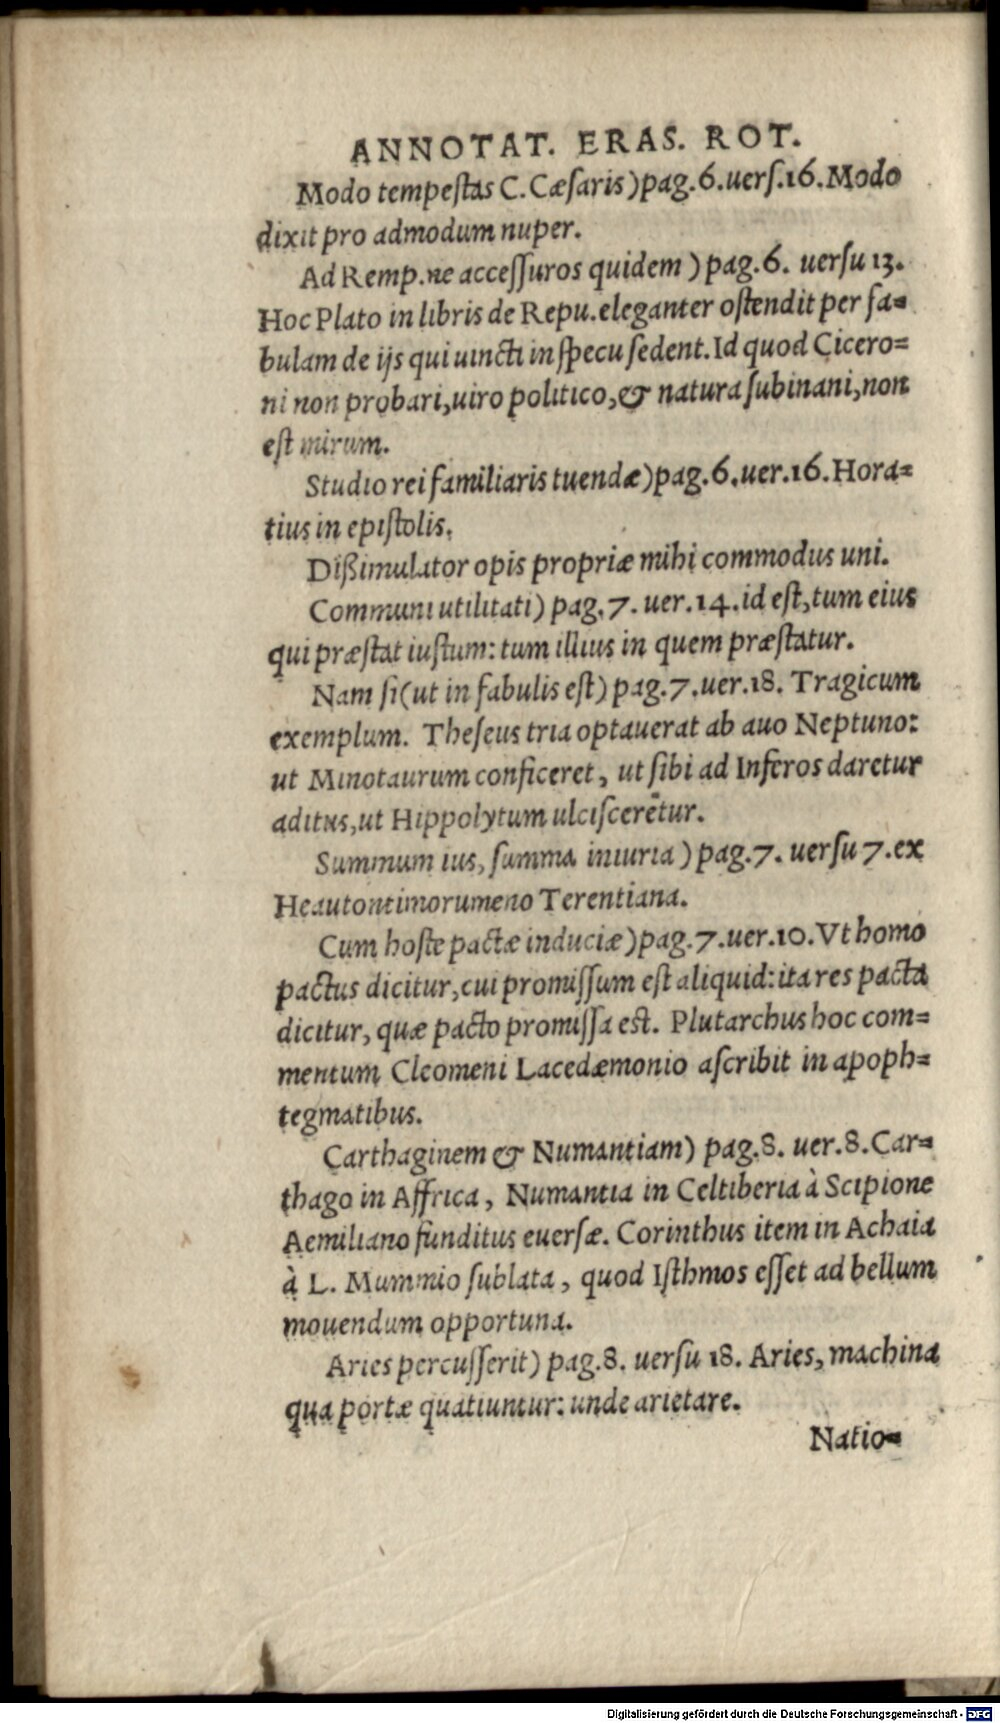 ANNOTAT. ERAS. ROT.
Modo tempeſtas C. Cæſaris) pag.6.uerſ.16. Modo
dixit pro admodum nuper.
Ad Remp.ne acceſſuros quidem) pag.6. uerſu 13.
Hoc Plato in libris de Repu. eleganter oſtendit per fa=
bulam de ijs qui uincti in ſpecu ſedent. Id quod Cicero=
ni non probari, uiro politico, & natura ſubinani, non
eſt mirum.
Studio rei familiaris tuendæ) pag.6.uer.16. Hora=
tius in epiſtolis.
Dißimulator opis propriæ mihi commodus uni.
Communi utilitati) pag.7. uer.14. id eſt, tum eius
qui præſtat iuſtum: tum illius in quem præſtatur.
Nam ſi (ut in fabulis eſt) pag.7.uer.18. Tragicum
exemplum. Theſeus tria optauerat ab auo Neptuno:
ut Minotaurum conficeret, ut ſibi ad Inferos daretur
aditus, ut Hippolytum ulciſcerētur.
Summum ius, ſumma iniuria) pag.7. uerſu 7. ex
Heautontimorumeno Terentiana.
Cum hoſte pactæ induciæ) pag.7.uer.10. Vt homo
pactus dicitur, cui promiſſum eſt aliquid: ita res pacta
dicitur, quæ pacto promiſſa eſt. Plutarchus hoc com=
mentum Cleomeni Lacedæmonio aſcribit in apoph=
tegmatibus.
Carthaginem & Numantiam) pag.8. uer.8. Car=
thago in Affrica, Numantia in Celtiberia à Scipione
Aemiliano funditus euerſæ. Corinthus item in Achaia
à L. Mummio ſublata, quod Iſthmos eſſet ad bellum
mouendum opportuna.
Aries percuſſerit) pag.8. uerſu 18. Aries, machina
qua portæ quatiuntur: unde arietare.
Natio=
Digitalisierung gefördert durch die Deutsche Forschungsgemeinschaft - DFG